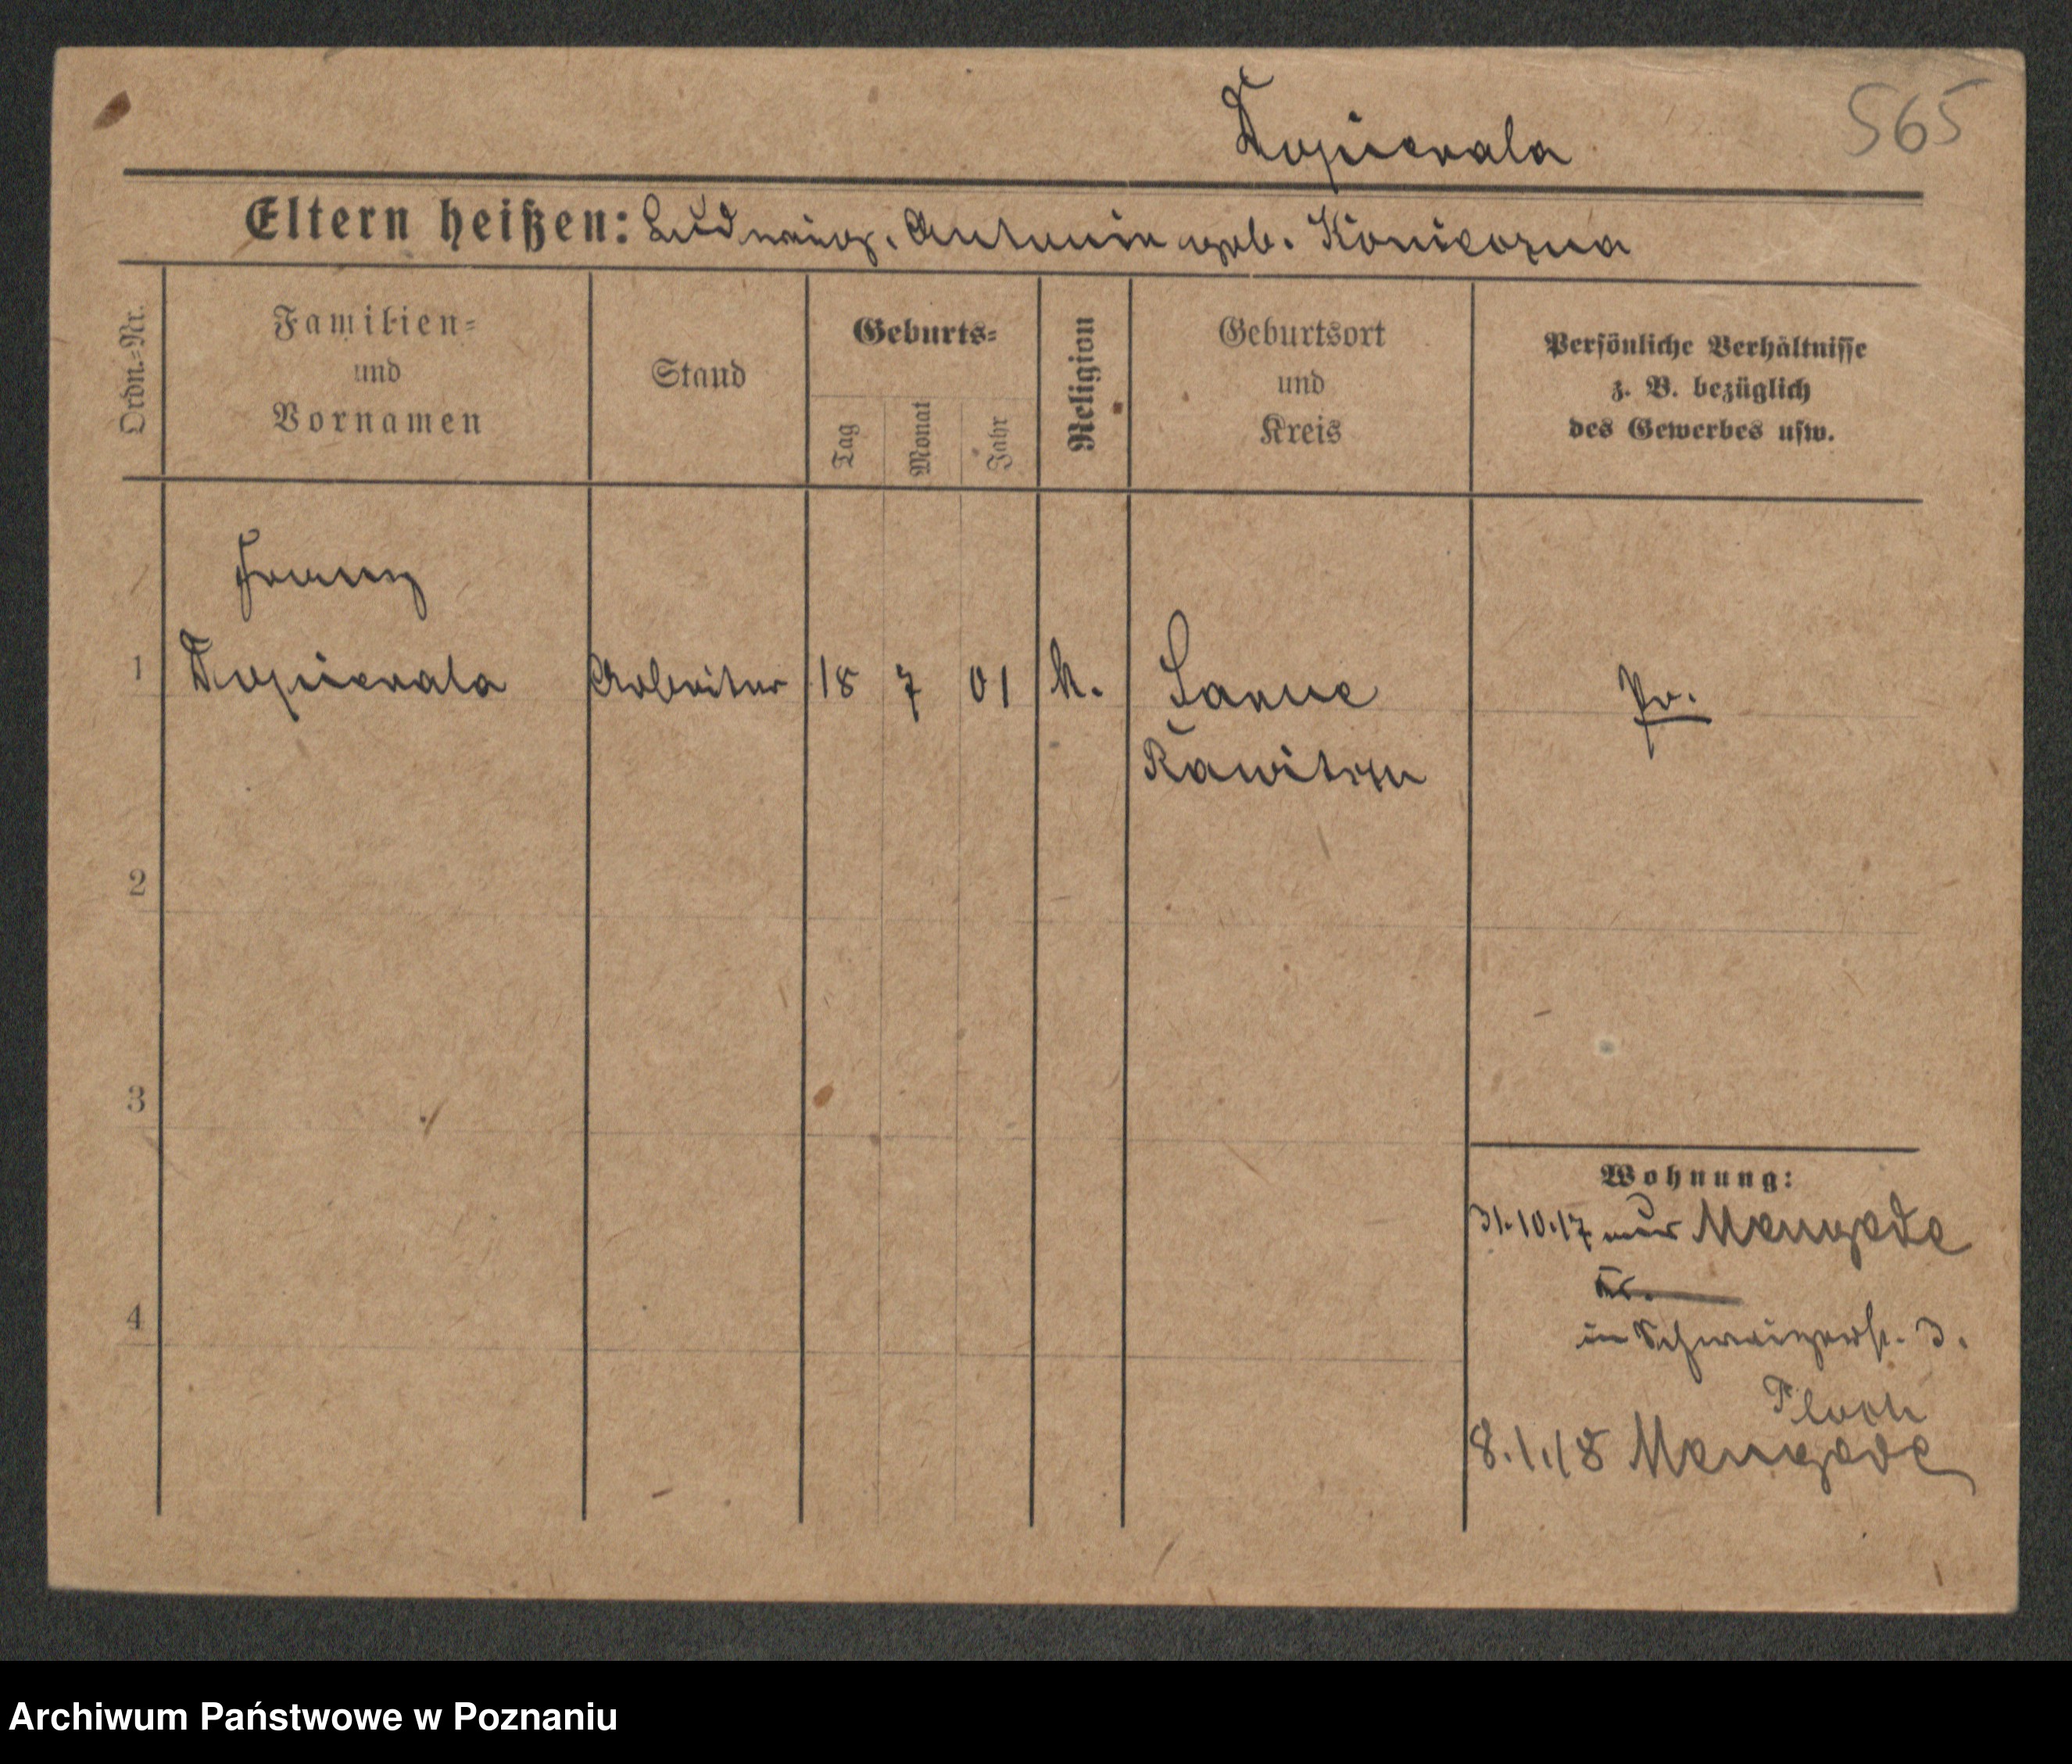 Dopierala
565
Eltern heißen: Ludwig. Antonie geb. Konieczna
Ordn.=Nr.
Familien=
und
Vornamen
Stand
Geburts=
Tag
Monat
Jahr
Religion
Geburtsort
und
Kreis
Persönliche Verhältnisse
z. B. bezüglich
des Gewerbes usw.
Franz
1 Dopierala Arbeiter 18 7 01 k. Sarne Pr.
Rawitsch
2
3
4
Wohnung:
31.10.17 nur Mengede
in Schweizerstr. 3.
8.1.18 Mengede
Archiwum Państwowe w Poznaniu